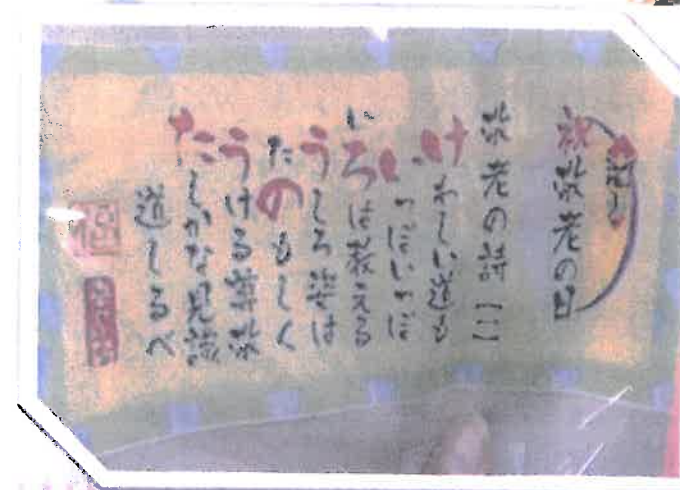 祝敬老の日
敬老の詩【二】
けわしい道も
いっぽいっぽ
ろは教える
うしろ姿は
たのもしく
うける尊敬
たしかな見識
道しるべ